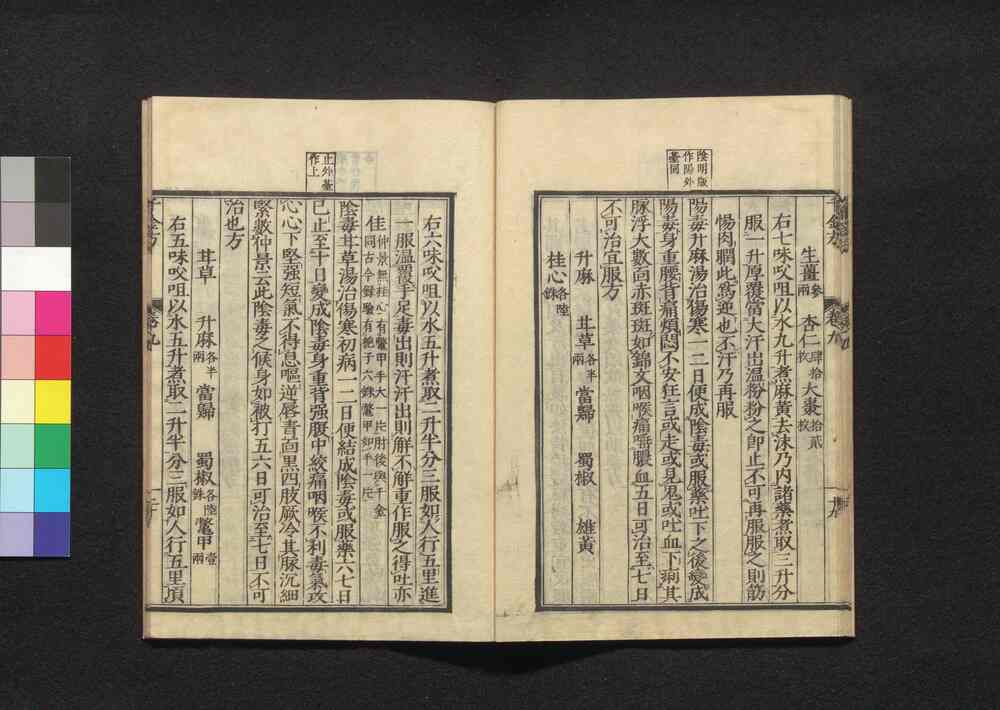 陰明版
作陽外
臺同
千金方
卷九
十九
生薑 參兩 杏仁 肆拾枚 大棗 拾貳枚
右七味㕮咀以水九升煮麻黃去沫乃内諸藥煮取三升分
服一升厚覆當大汗出温粉粉之卽止不可再服服之則筋
惕肉瞤此爲逆也不汗乃再服
陽毒升麻湯治傷寒一二日便成陽毒或服藥吐下之後變成
陽毒身重腰背痛煩悶不安狂言或走或見鬼或吐血下痢其
脉浮大數面赤斑斑如錦文咽喉痛唾膿血五日可治至七日
不可治宜服方
升麻 甘草 各半兩 當歸 蜀椒 雄黃
桂心 各陸銖
止外臺
作上
右六味㕮咀以水五升煮取二升半分三服如人行五里進
一服温覆手足毒出則汗汗出則解不解重作服之得吐亦
佳 仲景無桂心有鱉甲手大一片肘後與千金
同古今錄驗有梔子六銖鱉甲如手一片
陰毒甘草湯治傷寒初病一二日便結成陰毒或服藥六七日
已止至十日變成陰毒身重背强腹中絞痛咽喉不利毒氣攻
心心下堅强短氣不得息嘔逆唇青面黑四肢厥冷其脉沉細
緊數仲景云此陰毒之候身如被打五六日可治至七日不可
治也方
甘草 升麻 各半兩 當歸 蜀椒 各陸銖 鱉甲 壹兩
右五味㕮咀以水五升煮取二升半分三服如人行五里頃
千金方
卷九